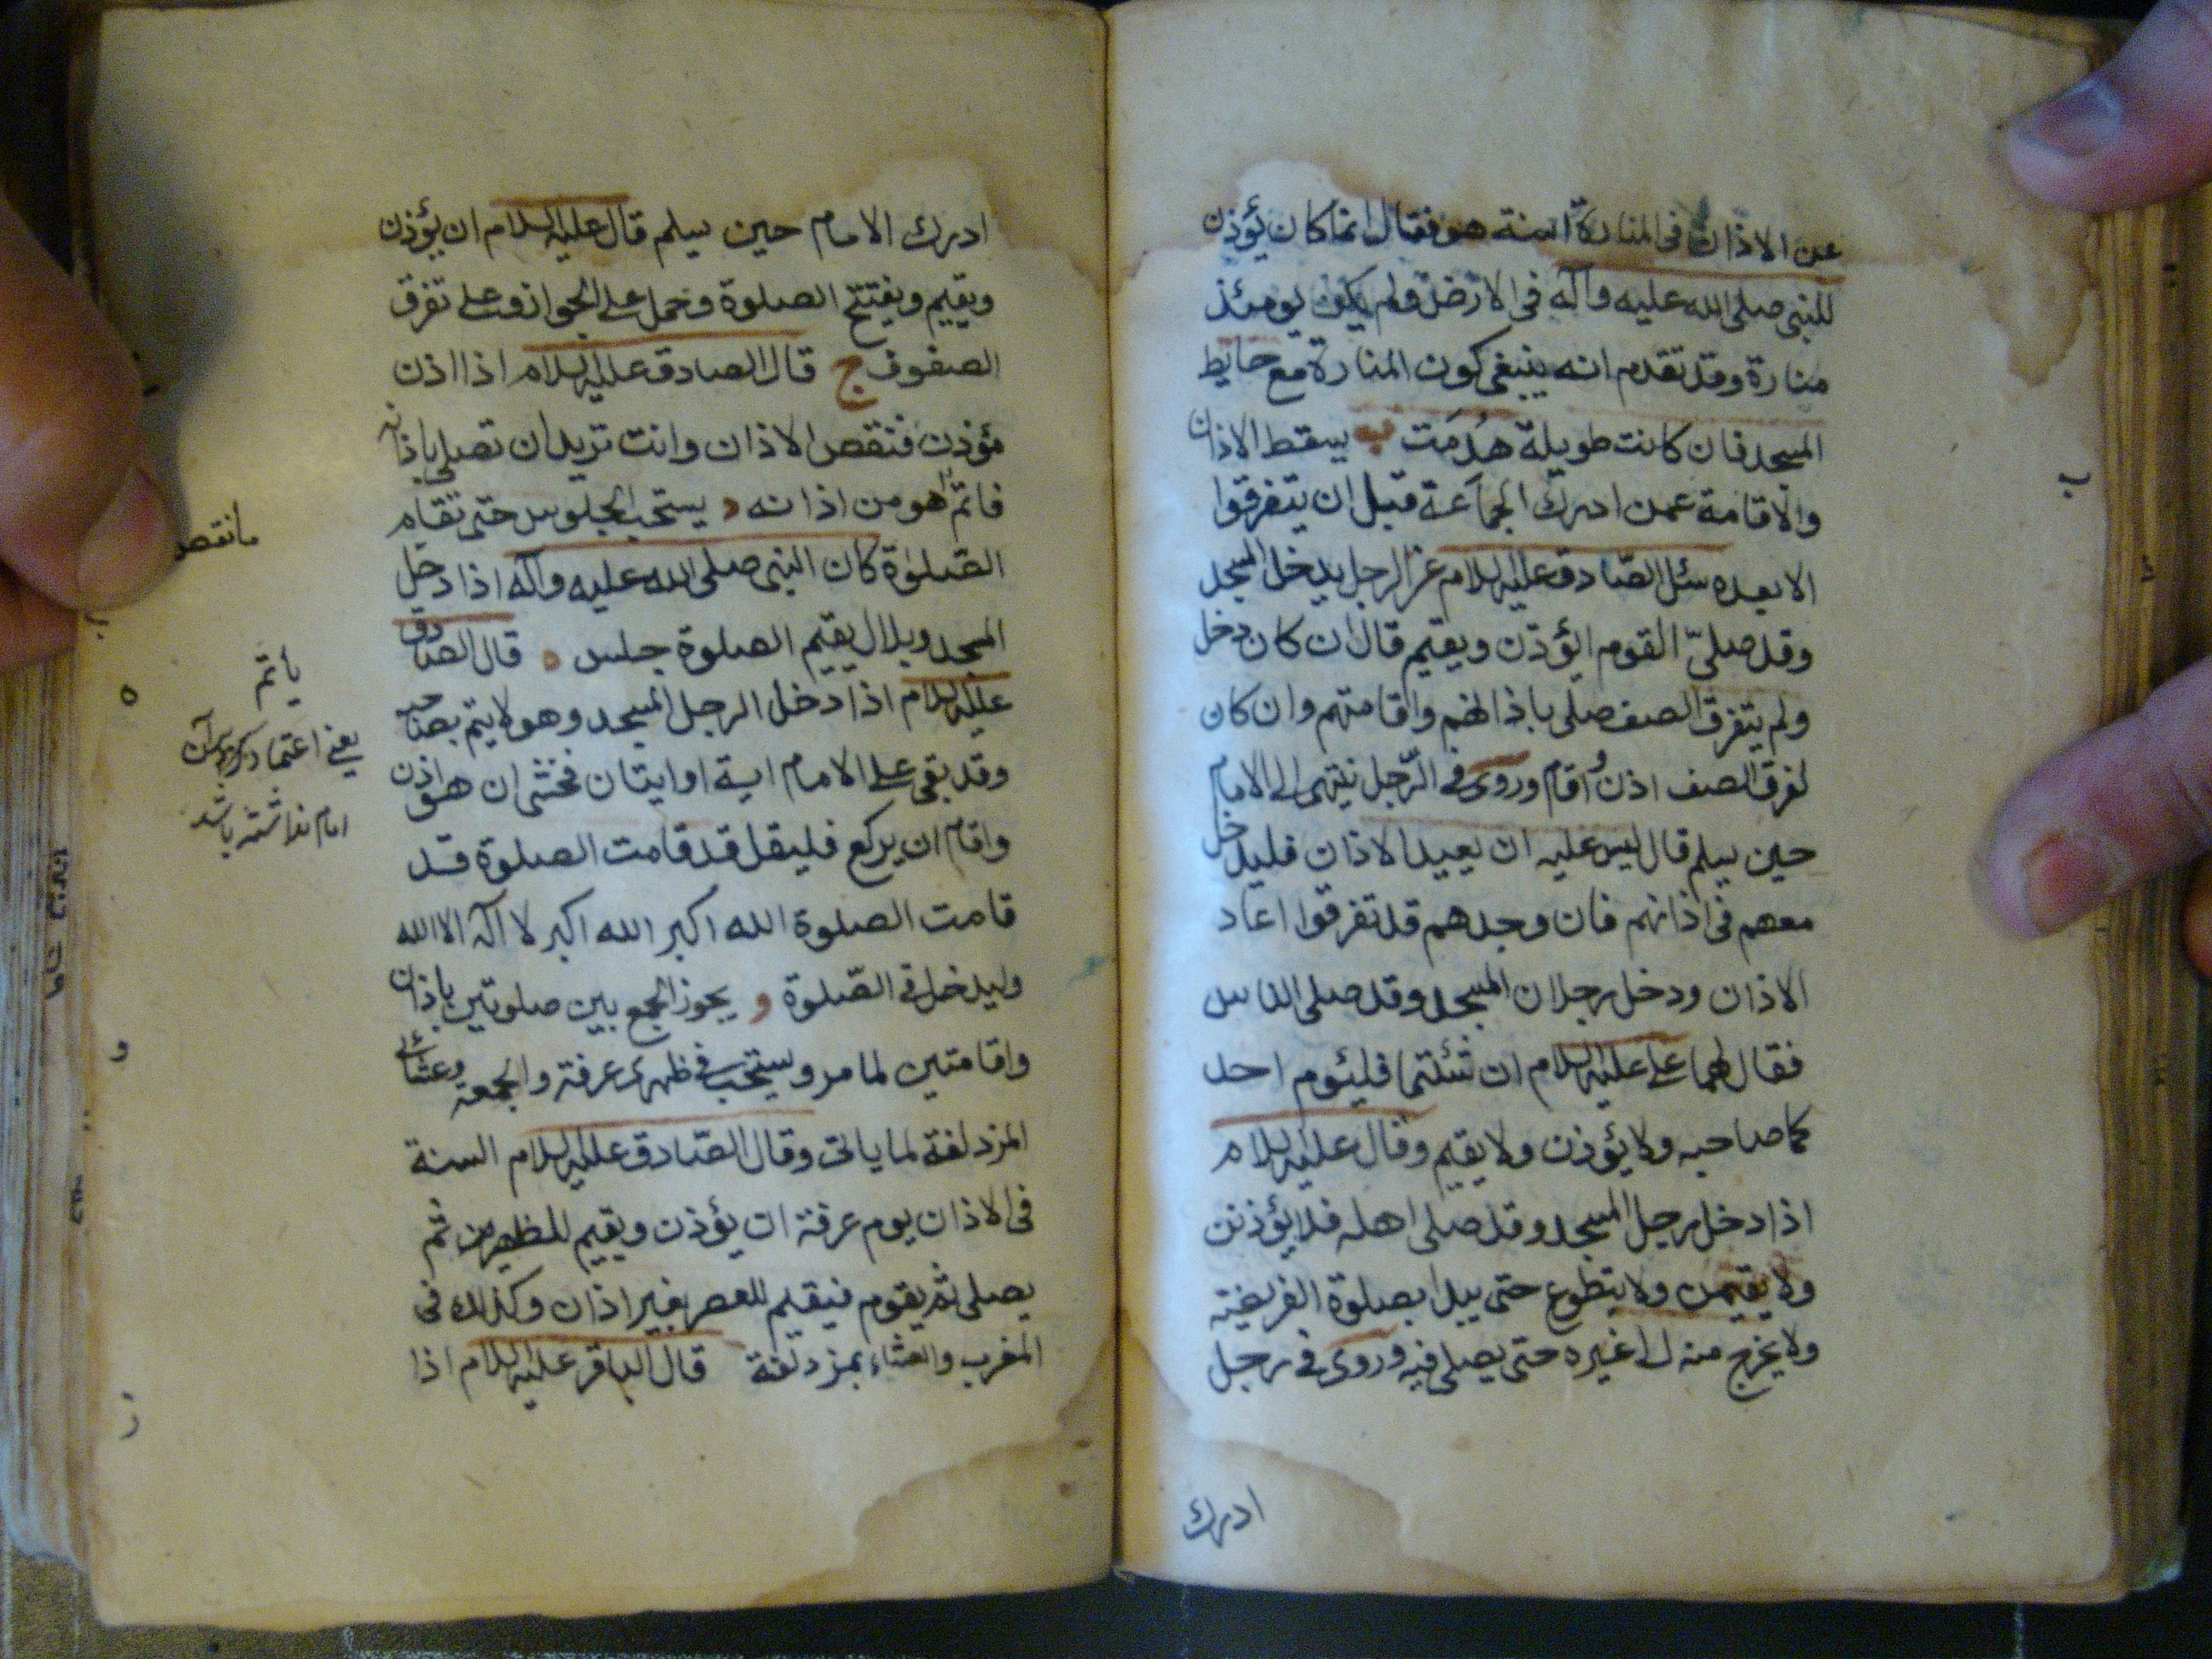 عن الاذان فى المنارة اسنة هو فقال انما كان يؤذن
للنبى صلى الله عليه وآله فى الارض ولم يكن يومئذ
منارة وقد تقدم انه ينبغى كون المنارة مع حايط
المسجد فان كانت طويلة هدمت ب يسقط الاذان
والاقامة عمن ادرك الجماعة قبل ان يتفرقوا
الا بعده سئل الصادق عليه السلام عن الرجل يدخل المسجد
وقد صلى القوم ايؤذن ويقيم قال ان كان دخل
ولم يتفرق الصف صلى باذانهم واقامتهم وان كان
تفرق الصف اذن واقام وروى فى الرجل ينتهى الى الامام
حين يسلم قال ليس عليه ان يعيد الاذان فليدخل
معهم فى اذانهم فان وجدهم قد تفرقوا اعاد
الاذان ودخل رجلان المسجد وقد صلى الناس
فقال لهما على عليه السلام ان شئتما فليؤم احد
كما صاحبه ولا يؤذن ولا يقيم وقال عليه السلام
اذا دخل رجل المسجد وقد صلى اهله فلا يؤذنن
ولا يقيمن ولا يتطوع حتى يبدا بصلوة الفريضة
ولا يخرج منه الى غيره حتى يصلى فيه وروى فى رجل
ادرك
ب
ادرك الامام حين يسلم قال عليه السلام ان يؤذن
ويقيم ويفتتح الصلوة وحمل على الجواز وعلى تفرق
الصفوف ج قال الصادق عليه السلام اذا اذن
مؤذن فنقص الاذان وانت تريد ان تصلى باذانه
فاتم هو من اذانه د يستحب الجلوس حتى تقام
الصلوة كان النبى صلى الله عليه وآله اذا دخل
المسجد وبلال يقيم الصلوة جلس ه قال الصادق
عليه السلام اذا دخل الرجل المسجد وهو لا يتم بصاحبه
وقد بقى على الامام اية او ايتان فخشى ان هو اذن
واقام ان يركع فليقل قد قامت الصلوة قد
قامت الصلوة الله اكبر الله اكبر لا اله الا الله
وليدخل فى الصلوة و يجوز الجمع بين صلوتين باذان
واقامتين لما مر ويستحب فى ظهرى عرفة والجمعة وعشائى
المزدلفة لما ياتى وقال الصادق عليه السلام السنة
فى الاذان يوم عرفة ان يؤذن ويقيم للظهر ثم
يصلى ثم يقوم فيقيم للعصر بغير اذان وكذلك فى
المغرب والعشاء بمزدلفة قال الباقر عليه السلام اذا
ما نقص
يأتم
يعنى اعتماد
امام نداشته باشد
ه
و
ز